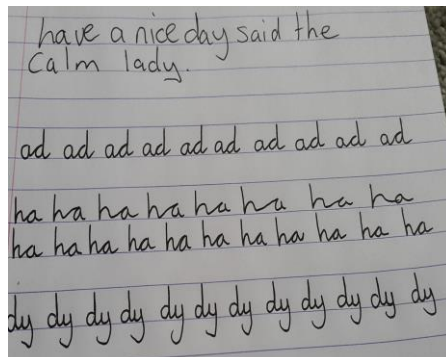 have a nice day said the
Calm lady.
ad ad ad ad ad ad ad ad ad ad
ha ha ha ha ha ha ha ha
ha ha ha ha ha ha ha ha ha ha ha
dy dy dy dy dy dy dy dy dy dy dy dy